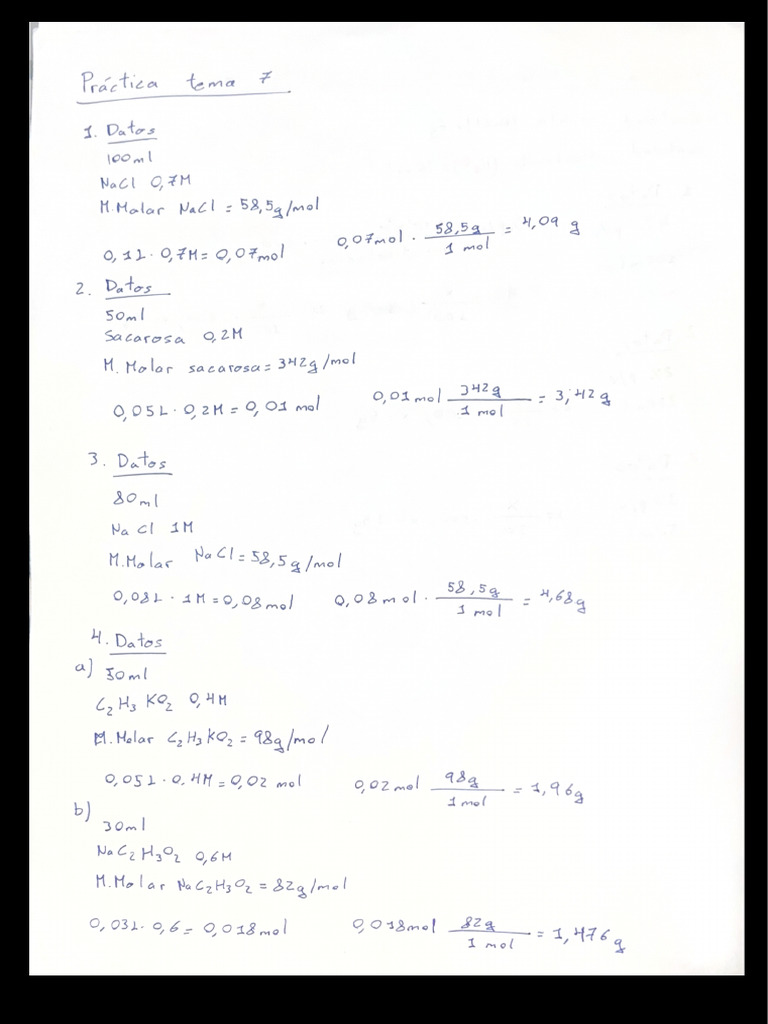 Práctica tema 7
1. Datos
100ml
NaCl 0,7M
M.Molar NaCl = 58,5g/mol
0,1L · 0,7M = 0,07mol 0,07mol · 58,5g / 1 mol = 4,09 g
2. Datos
50ml
Sacarosa 0,2M
M. Molar sacarosa = 342g/mol
0,05L · 0,2M = 0,01 mol 0,01mol 342g / 1 mol = 3,42g
3. Datos
80ml
NaCl 1M
M.Molar NaCl = 58,5g/mol
0,08L · 1M = 0,08mol 0,08mol · 58,5g / 1 mol = 4,68g
4. Datos
a) 50ml
C₂H₃KO₂ 0,4M
M.Molar C₂H₃KO₂ = 98g/mol
0,05L · 0,4M = 0,02 mol 0,02mol 98g / 1mol = 1,96g
b)
30ml
NaC₂H₃O₂ 0,6M
M.Molar NaC₂H₃O₂ = 82g/mol
0,03L · 0,6 = 0,018mol 0,018mol 82g / 1 mol = 1,476g